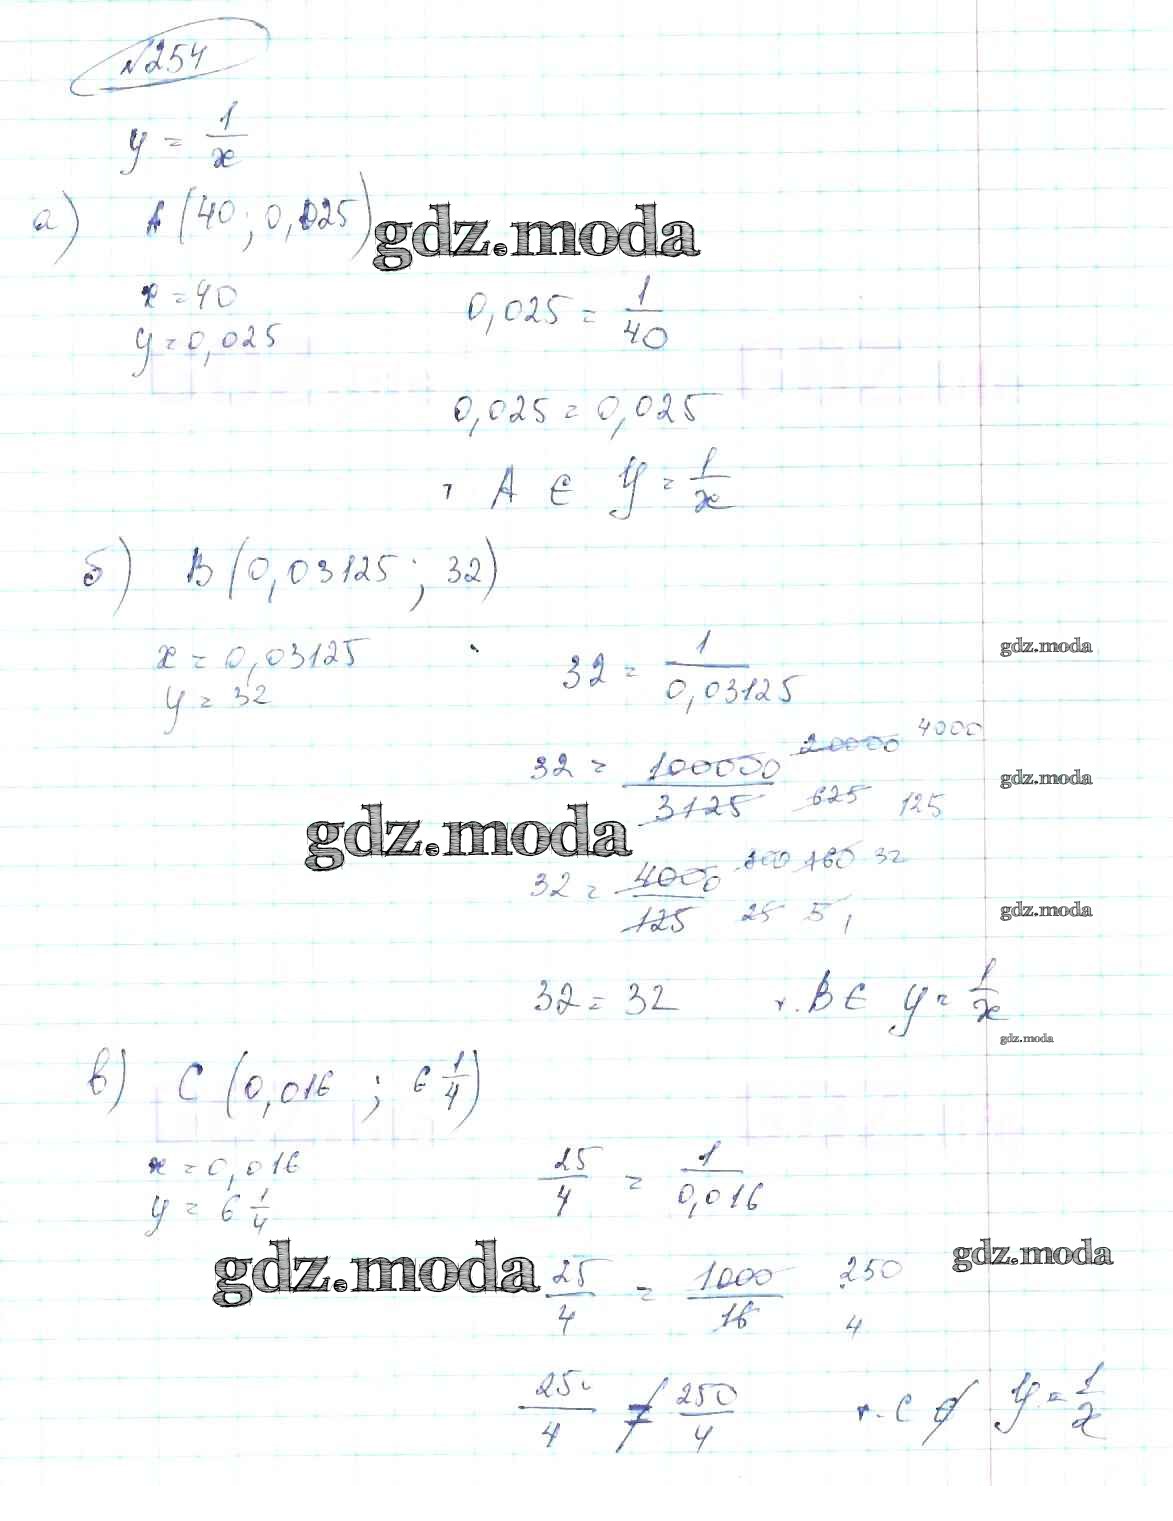 №254
y = 1/x
а) A (40 ; 0,025)
gdz.moda
x = 40
y = 0,025
0,025 = 1/40
0,025 = 0,025
т A ∈ y = 1/x
б) B (0,03125 ; 32)
x = 0,03125
y = 32
32 = 1/0,03125
gdz.moda
32 = 100000/3125 20000/625 4000/125
gdz.moda
gdz.moda
32 = 4000/125 800/25 160/5 32/1
gdz.moda
32 = 32 т. B ∈ y = 1/x
gdz.moda
в) C (0,016 ; 6 1/4)
x = 0,016
y = 6 1/4
25/4 = 1/0,016
gdz.moda
gdz.moda
25/4 = 1000/16 250/4
25/4 ≠ 250/4 т. C ∉ y = 1/x